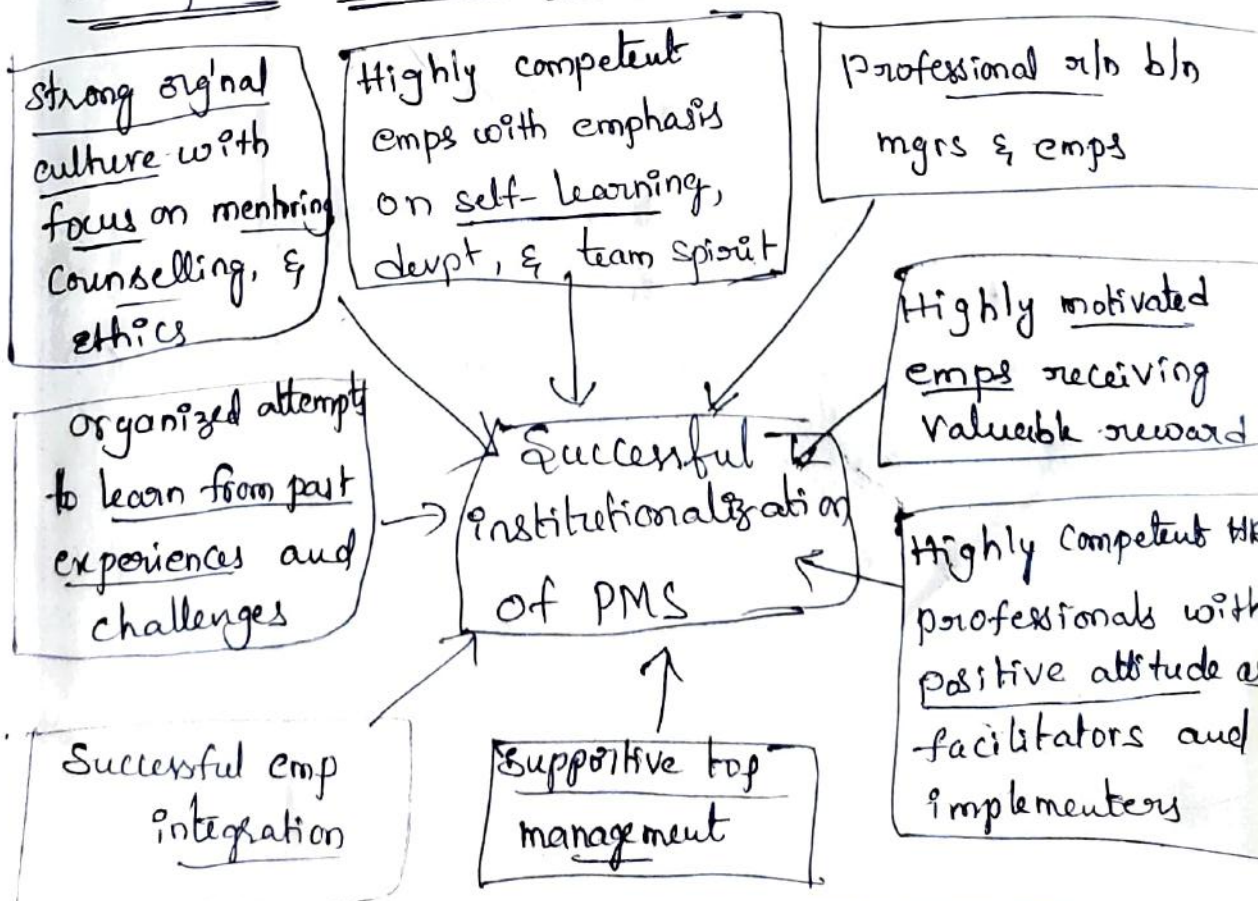 strong org'nal
culture with
focus on mentoring
counselling, &
ethics
Highly competent
emps with emphasis
on self-learning,
devpt, & team spirit
Professional r/n b/n
mgrs & emps
Highly motivated
emps receiving
valuable reward
organized attempts
to learn from past
experiences and
challenges
Successful
institutionalization
of PMS
Highly competent
professionals with
positive attitude
facilitators and
implementers
Successful emp
integration
Supportive top
management